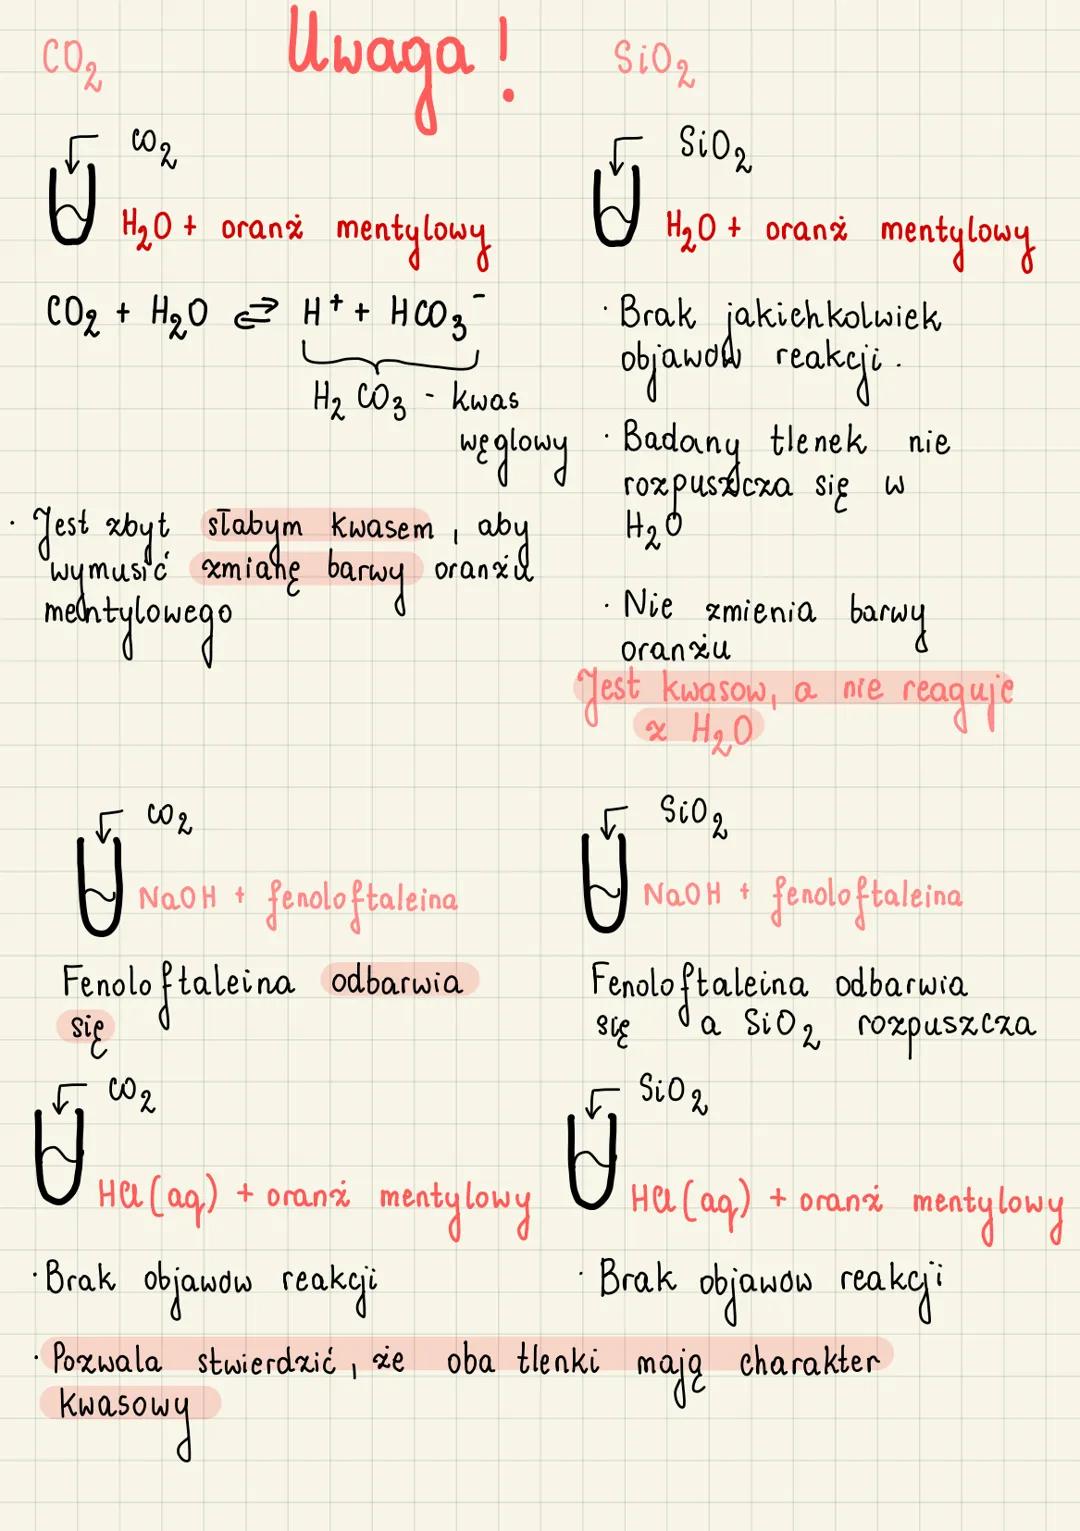 CO₂ Uwaga! SiO₂
CO₂
H₂O + oranż mentylowy
CO₂ + H₂O ⇌ H⁺ + HCO₃⁻
H₂CO₃ - kwas
węglowy
· Jest zbyt słabym kwasem, aby
wymusić zmianę barwy oranżu
mentylowego
SiO₂
H₂O + oranż mentylowy
· Brak jakichkolwiek
objawów reakcji.
· Badany tlenek nie
rozpuszcza się w
H₂O
· Nie zmienia barwy
oranżu
Jest kwasow, a nie reaguje
z H₂O
CO₂
NaOH + fenoloftaleina
Fenoloftaleina odbarwia
się
SiO₂
NaOH + fenoloftaleina
Fenoloftaleina odbarwia
się a SiO₂ rozpuszcza
CO₂
HCl (aq) + oranż mentylowy
· Brak objawów reakcji
SiO₂
HCl (aq) + oranż mentylowy
· Brak objawów reakcji
· Pozwala stwierdzić, że oba tlenki mają charakter
kwasowy